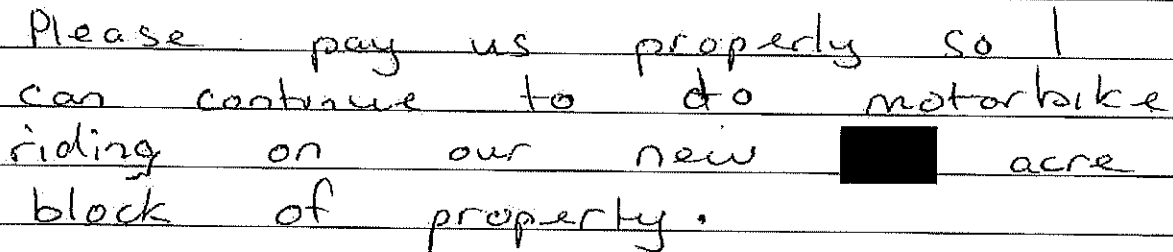 Please pay us properly so I
can continue to do motorbike
riding on our new acre
block of property.